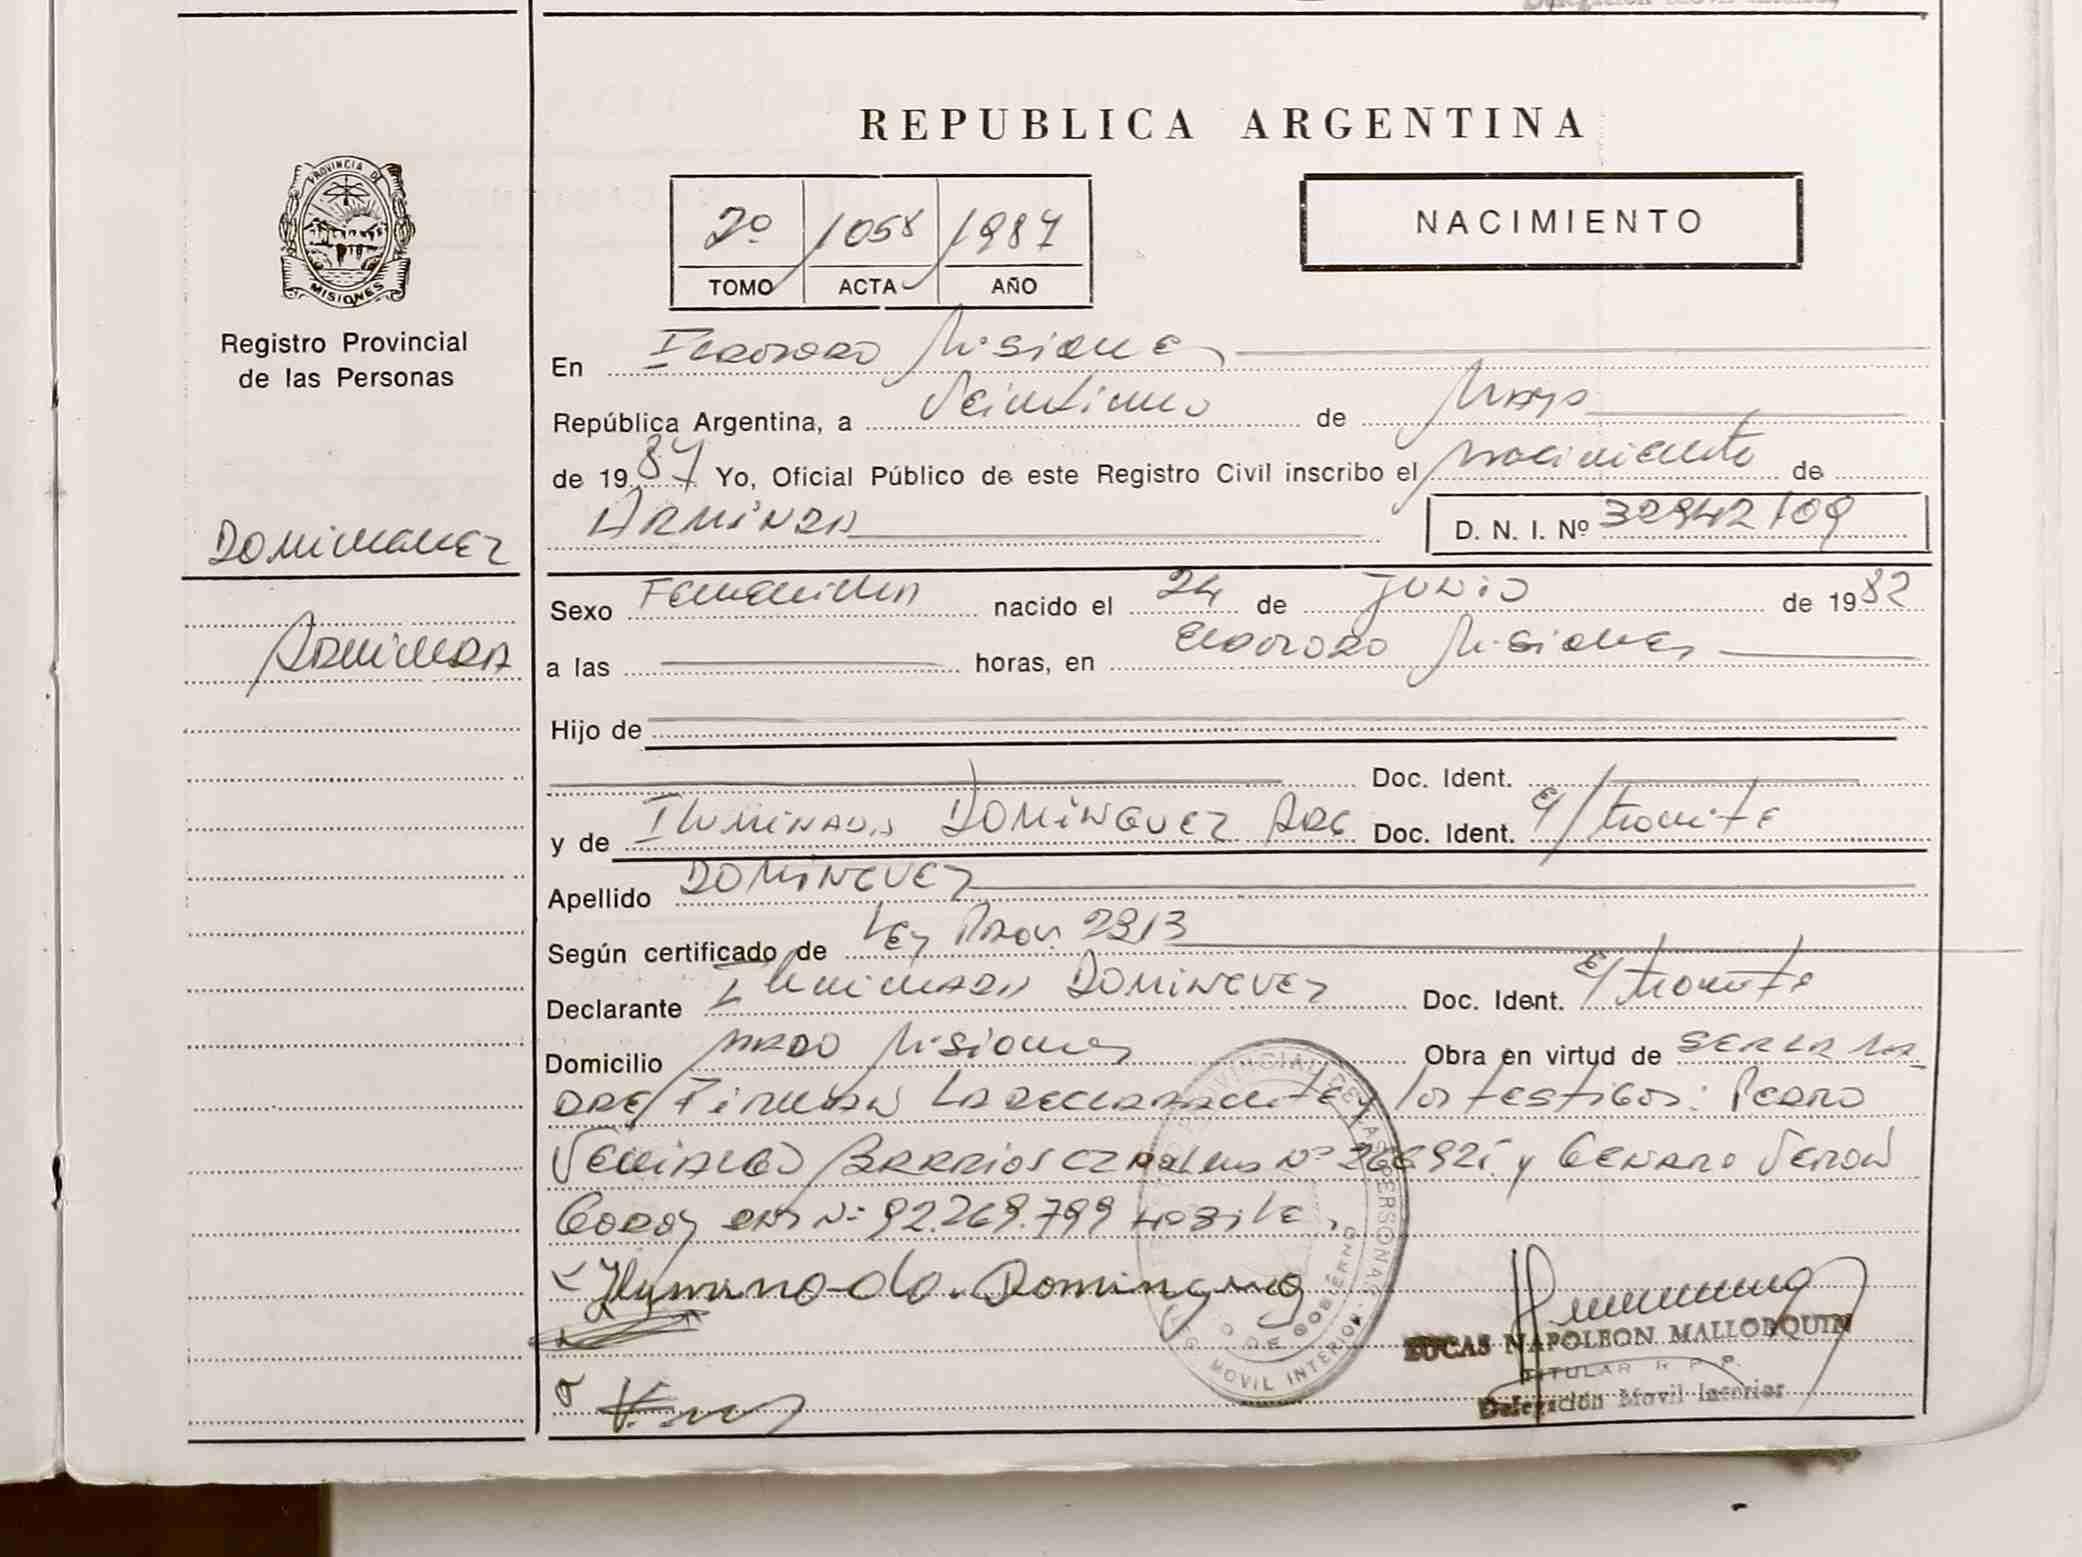 REPUBLICA ARGENTINA
PROVINCIA DE
MISIONES
Registro Provincial
de las Personas
Dominguez
Arminda
2º 1058 1987
TOMO ACTA AÑO
NACIMIENTO
En Eldorado Misiones
República Argentina, a Veintiuno de Mayo
de 1987 Yo, Oficial Público de este Registro Civil inscribo el nacimiento de
Arminda D. N. I. Nº 32942109
Sexo Femenino nacido el 24 de Junio de 1982
a las horas, en Eldorado Misiones
Hijo de
Doc. Ident.
y de Iluminada Dominguez Arg Doc. Ident. E/tramite
Apellido Dominguez
Según certificado de Ley Prov. 2913
Declarante Iluminada Dominguez Doc. Ident. E/tramite
Domicilio Misiones Obra en virtud de ser la ma-
dre/Firman la declarante y los testigos: Pedro
Barrios y Genaro Veron
Godoy DNI Nº 92.269.799
Ilumino-do. Domingue
LUCAS NAPOLEON MALLORQUIN
TITULAR R. P. P.
Delegación Movil Interior
PROVINCIAL DE LAS PERSONAS
O DE GOBIERNO
DELEG. MOVIL INTERIOR